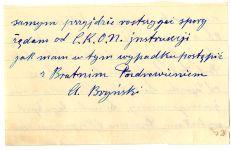 samym przyjdzie rostrzygać spory
żądam od C.K.O.N. instrukcji
jak mam w tym wypadku postąpić
z Bratnim Pozdrowieniem
A. Bryński